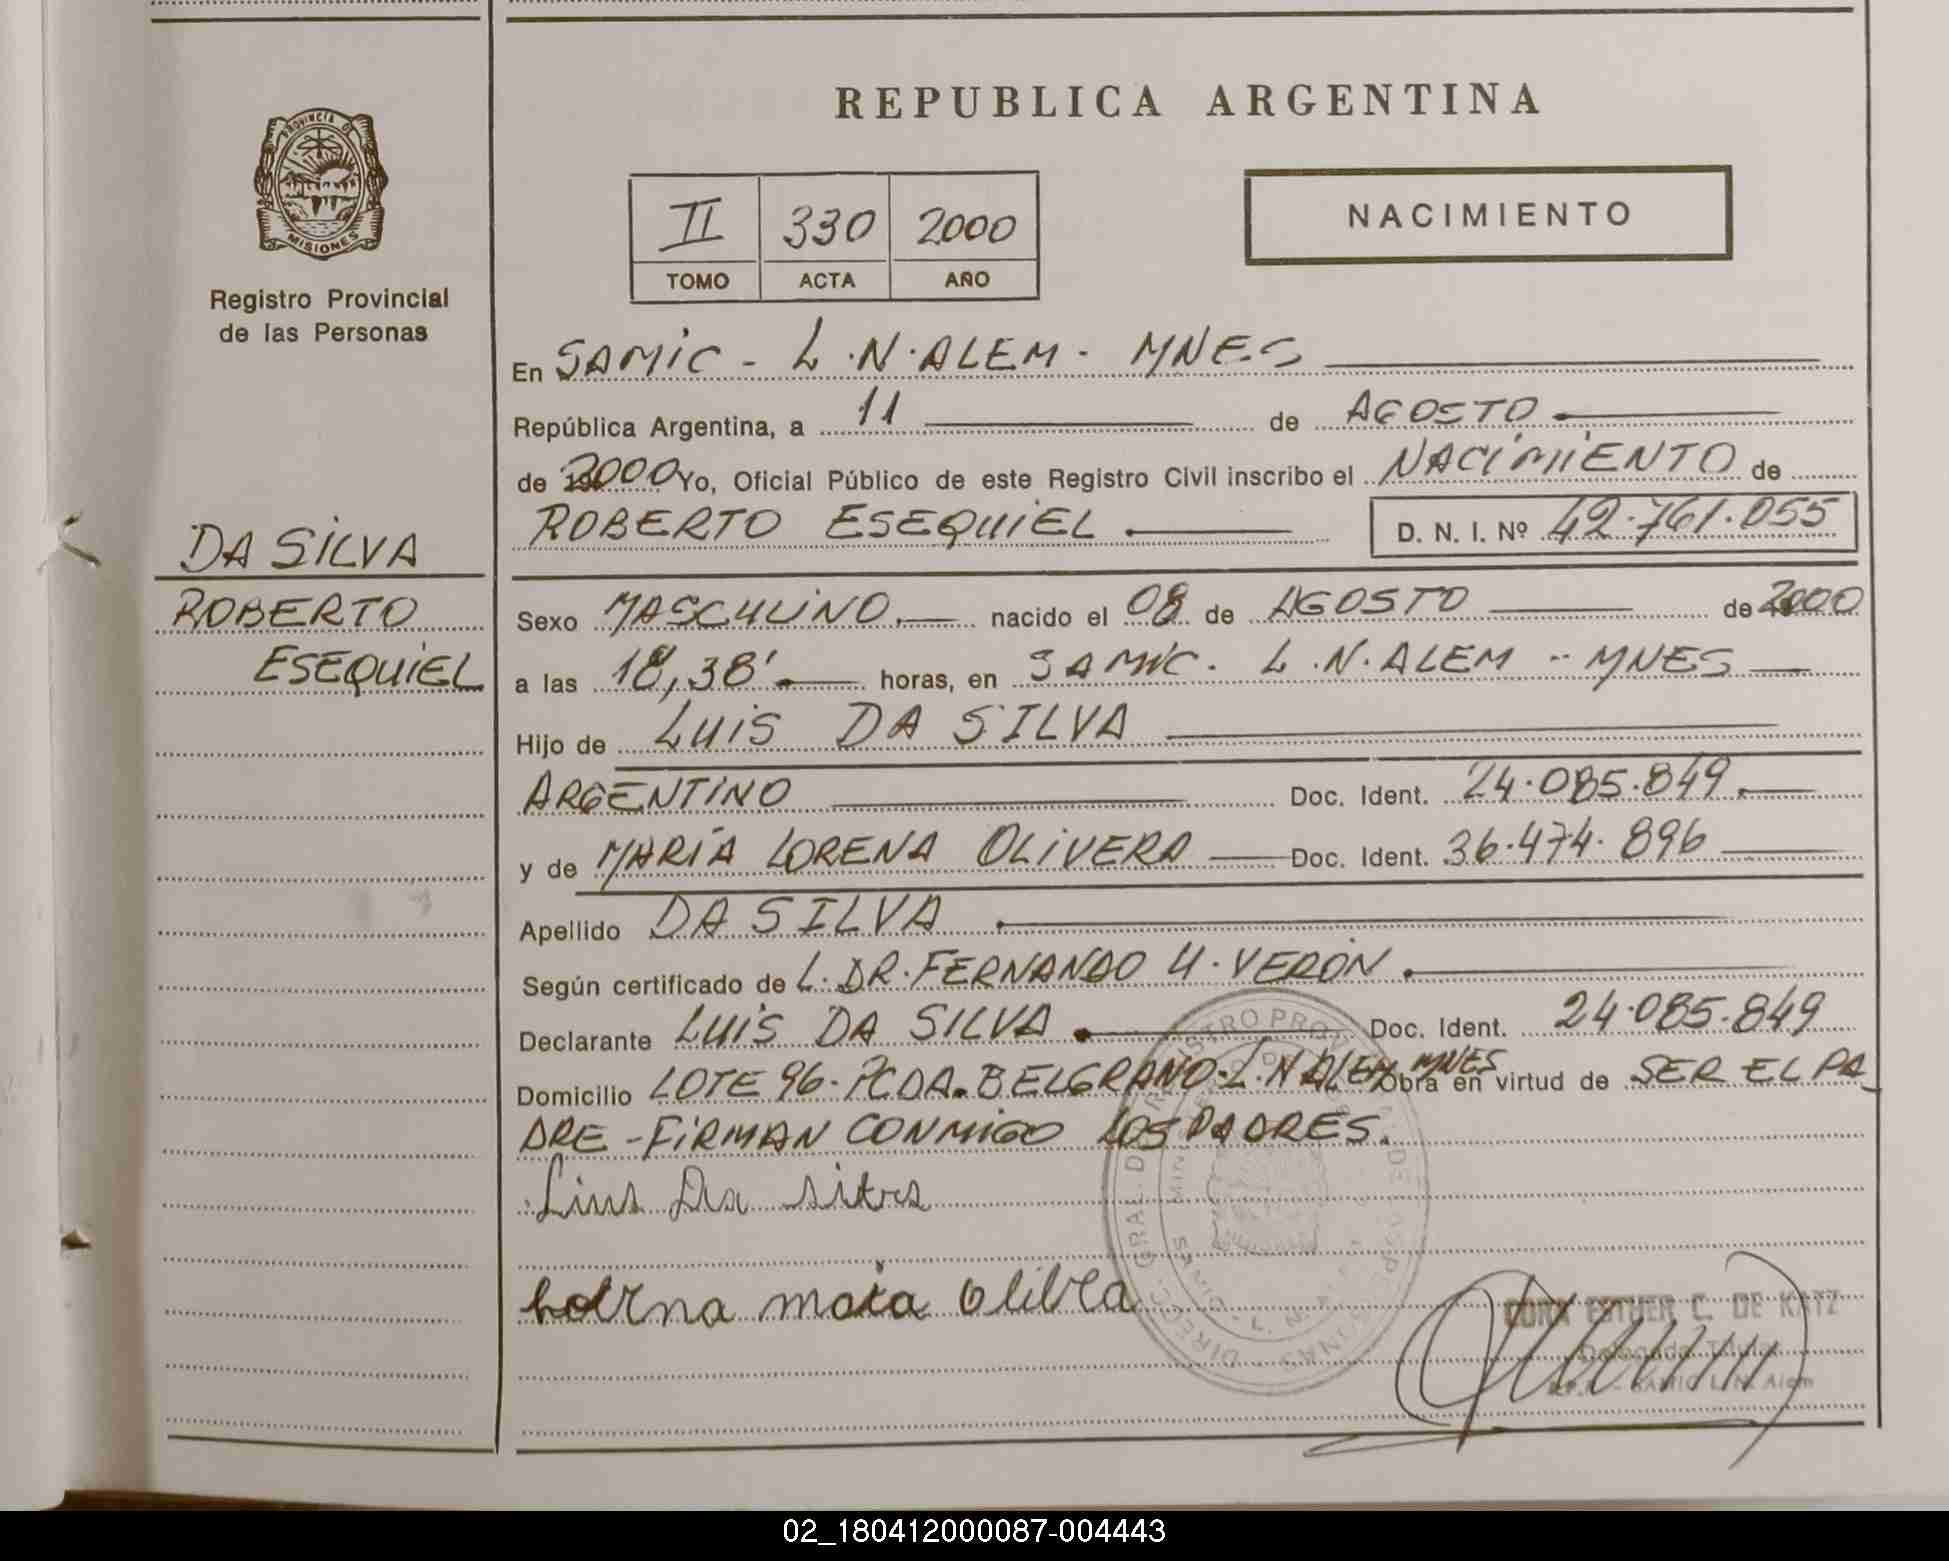 REPUBLICA ARGENTINA
PROVINCIA DE
MISIONES
Registro Provincial
de las Personas
II 330 2000
TOMO ACTA AÑO
NACIMIENTO
DA SILVA
ROBERTO
ESEQUIEL
En SAMIC - L.N.ALEM - MNES
República Argentina, a 11 de AGOSTO
de 2000 Yo, Oficial Público de este Registro Civil inscribo el NACIMIENTO de
ROBERTO ESEQUIEL D. N. I. Nº 42.761.055
Sexo MASCULINO nacido el 08 de AGOSTO de 2000
a las 18,38' horas, en SAMIC. L.N.ALEM - MNES
Hijo de LUIS DA SILVA
ARGENTINO Doc. Ident. 24.085.849.
y de MARÍA LORENA OLIVERA Doc. Ident. 36.474.896
Apellido DA SILVA
Según certificado de L. DR. FERNANDO U. VERÓN.
Declarante LUIS DA SILVA Doc. Ident. 24.085.849
Domicilio LOTE 96-PCDA. BELGRANO-L.N ALEM MNES Obra en virtud de SER EL PA_
DRE - FIRMAN CONMIGO LOS PADRES.
Luis Da silva
olibera
CORA ESTHER C. DE KATZ
Delegada Titular
R.P.P. - SAMIC L.N. Alem
02_180412000087-004443